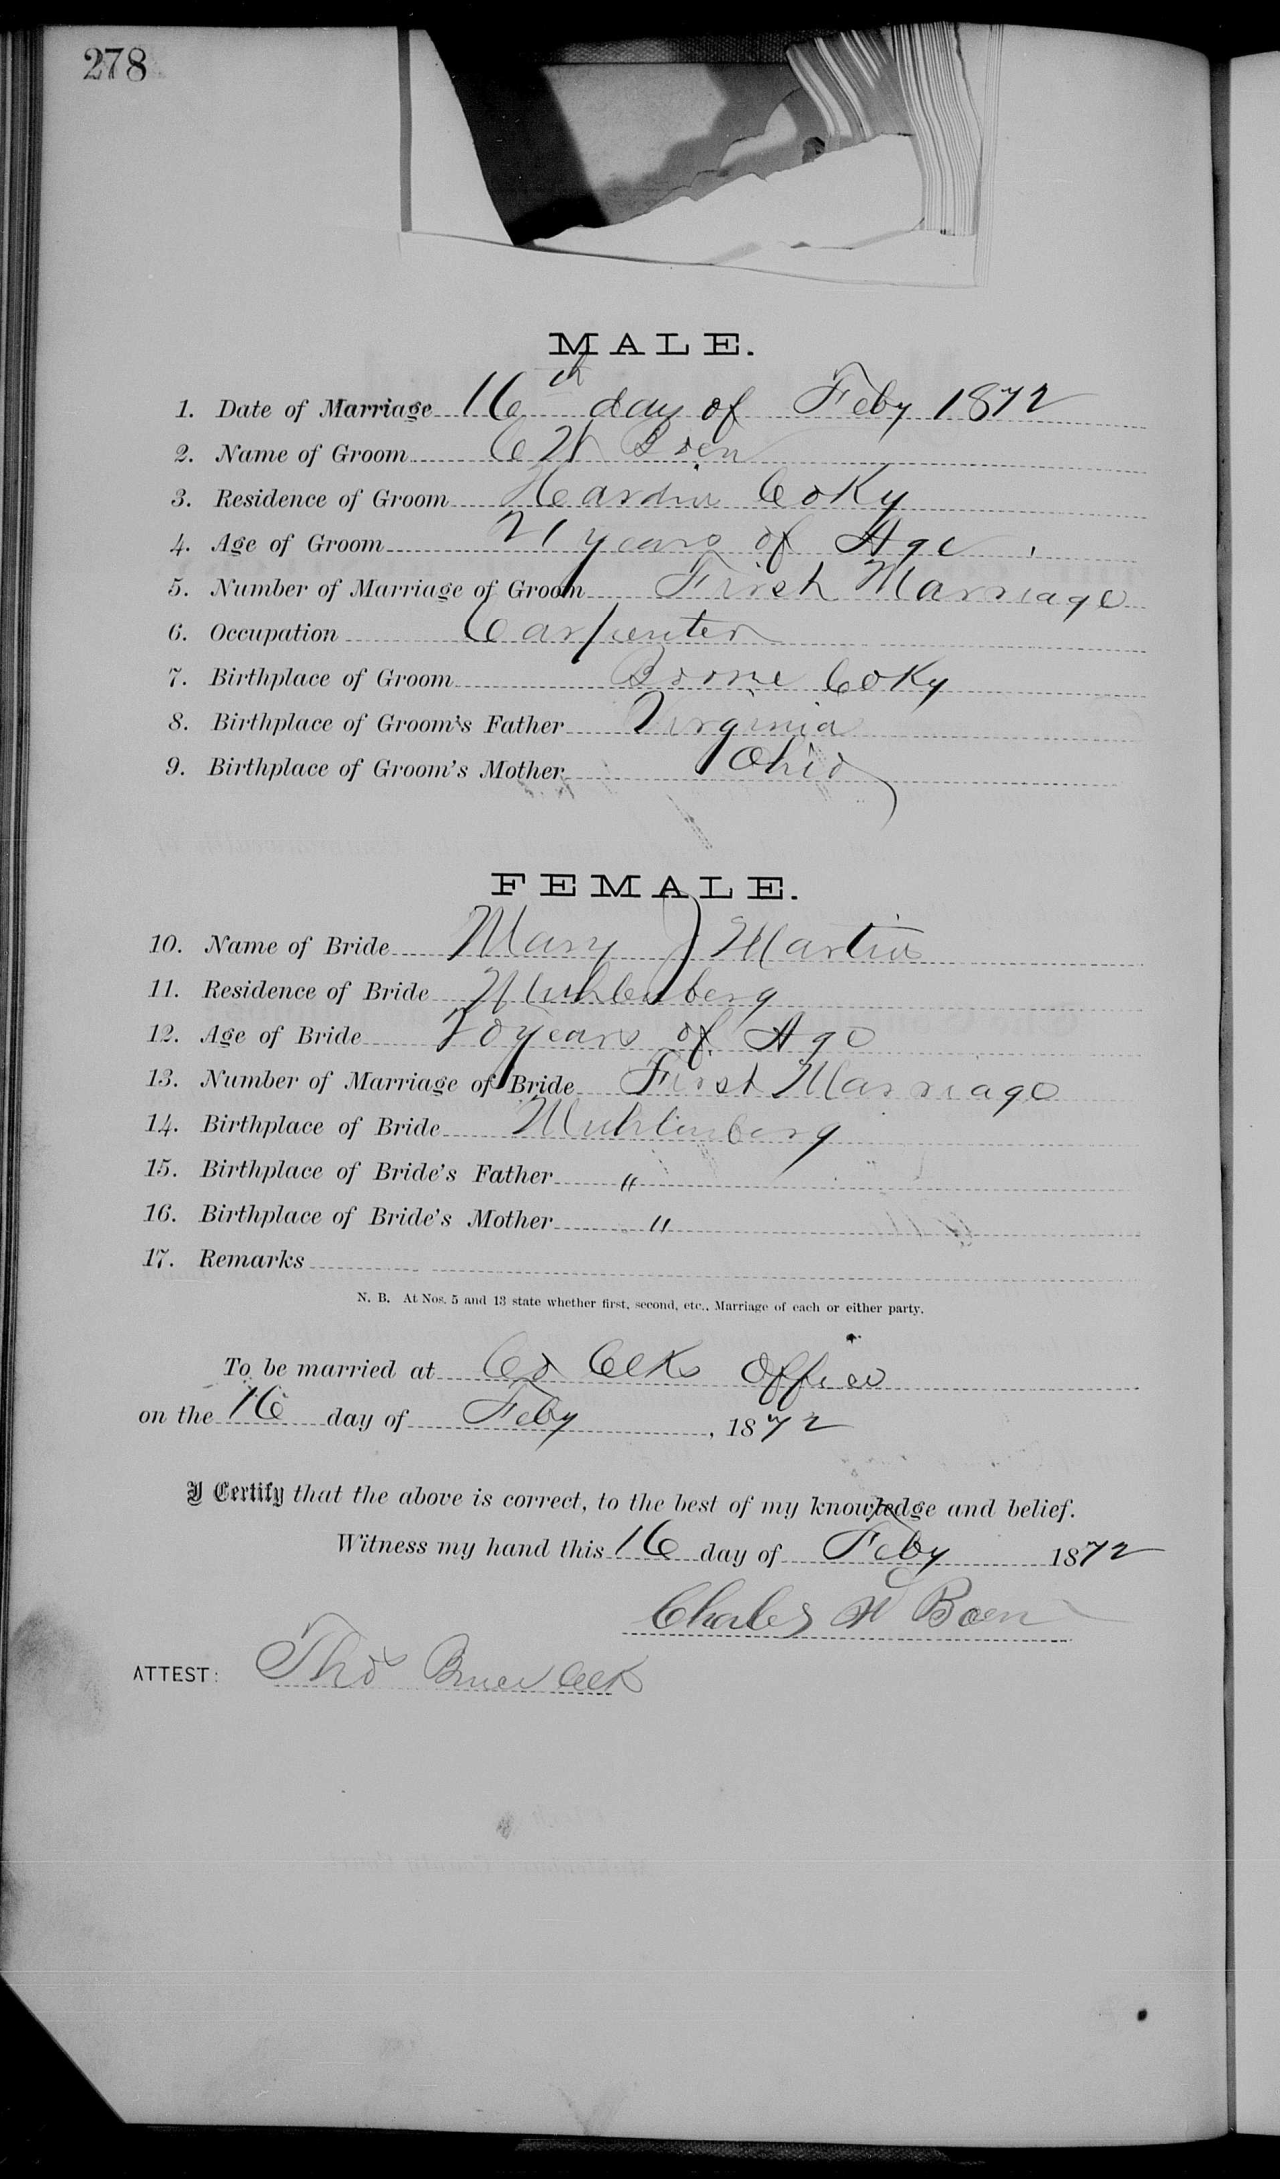 278
MALE.
1. Date of Marriage 16th day of Feby 1872
2. Name of Groom C W Boen
3. Residence of Groom Hardin Co Ky
4. Age of Groom 21 years of Age
5. Number of Marriage of Groom First Marriage
6. Occupation Carpenter
7. Birthplace of Groom Boone Co Ky
8. Birthplace of Groom's Father Virginia
9. Birthplace of Groom's Mother Ohio
FEMALE.
10. Name of Bride Mary J Martin
11. Residence of Bride Muhlenberg
12. Age of Bride 20 years of Age
13. Number of Marriage of Bride First Marriage
14. Birthplace of Bride Muhlenberg
15. Birthplace of Bride's Father "
16. Birthplace of Bride's Mother "
17. Remarks
N. B. At Nos. 5 and 13 state whether first, second, etc., Marriage of each or either party.
To be married at Co Clks Office
on the 16 day of Feby, 1872
I Certify that the above is correct, to the best of my knowledge and belief.
Witness my hand this 16 day of Feby 1872
Charles W Boen
ATTEST: Tho Bruce Clk